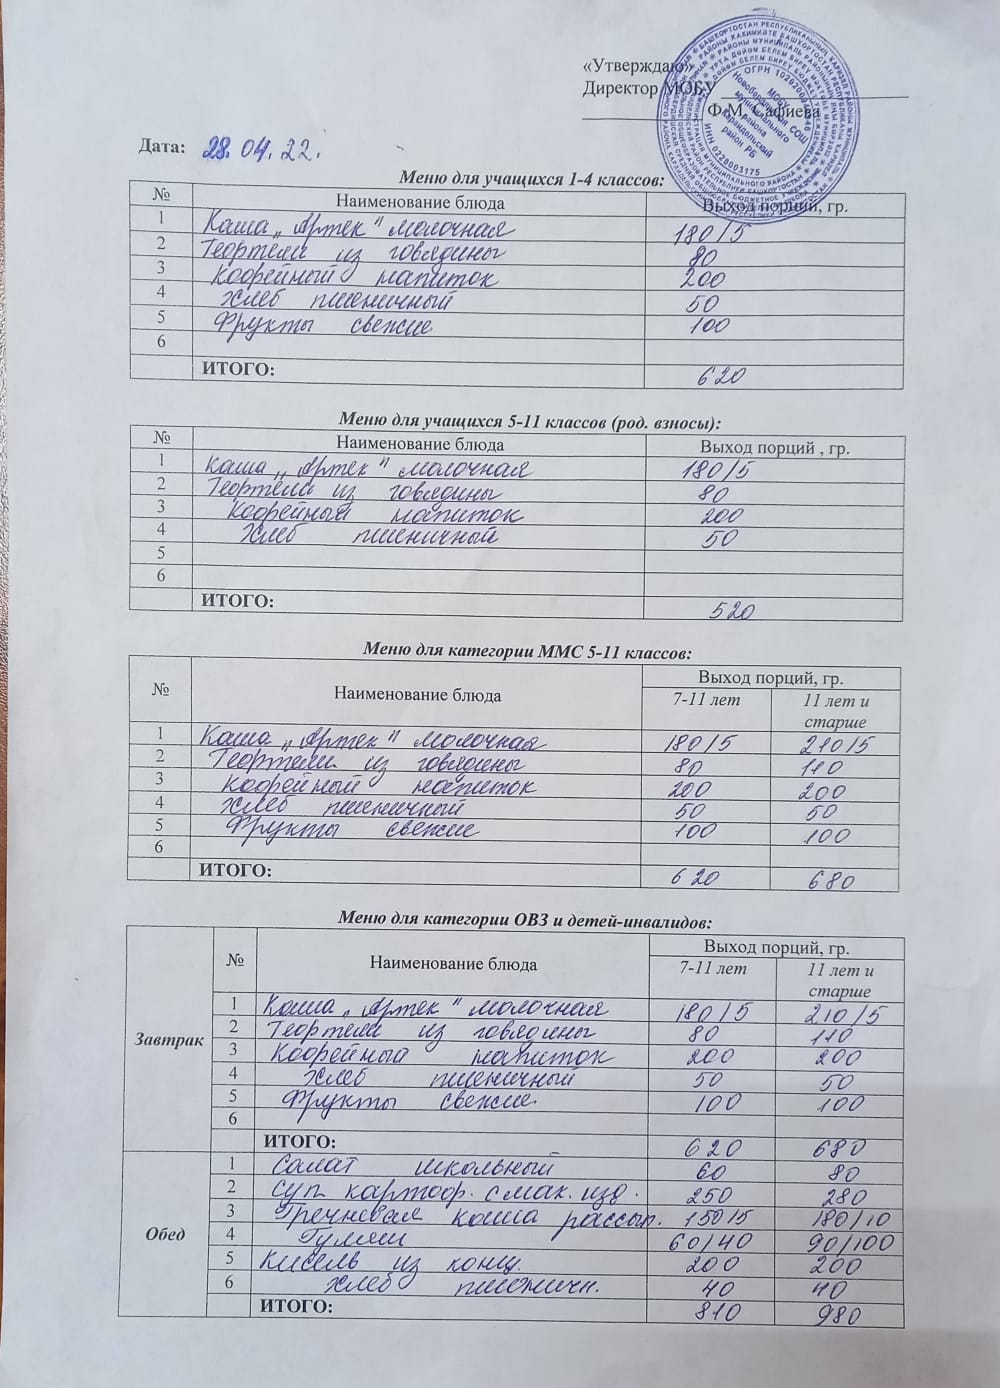 «Утверждаю»
Директор МОБУ
Ф.М. Сафиева
МОБУ
Новобердяшская СОШ
муниципального
района
Караидельский
район РБ
ИНН 0228003175
Дата: 28.04.22.
Меню для учащихся 1-4 классов:
№ Наименование блюда Выход порций, гр.
1 Каша „Артек" молочная 180/5
2 Тефтели из говядины 80
3 Кофейный напиток 200
4 Хлеб пшеничный 50
5 Фрукты свежие 100
6
ИТОГО: 620
Меню для учащихся 5-11 классов (род. взносы):
№ Наименование блюда Выход порций , гр.
1 Каша „Артек" молочная 180/5
2 Тефтели из говядины 80
3 Кофейный напиток 200
4 Хлеб пшеничный 50
5
6
ИТОГО: 520
Меню для категории ММС 5-11 классов:
№ Наименование блюда Выход порций, гр.
7-11 лет 11 лет и старше
1 Каша „Артек" молочная 180/5 210/5
2 Тефтели из говядины 80 110
3 Кофейный напиток 200 200
4 Хлеб пшеничный 50 50
5 Фрукты свежие 100 100
6
ИТОГО: 620 680
Меню для категории ОВЗ и детей-инвалидов:
№ Наименование блюда Выход порций, гр.
7-11 лет 11 лет и старше
Завтрак
1 Каша „Артек" молочная 180/5 210/5
2 Тефтели из говядины 80 110
3 Кофейный напиток 200 200
4 Хлеб пшеничный 50 50
5 Фрукты свежие 100 100
6
ИТОГО: 620 680
Обед
1 Салат школьный 60 80
2 Суп картоф. с мак. изд. 250 280
3 Гречневая каша рассып. 150/5 180/10
4 Гуляш 60/40 90/100
5 Кисель из конц. 200 200
6 Хлеб пшеничн. 40 40
ИТОГО: 810 980